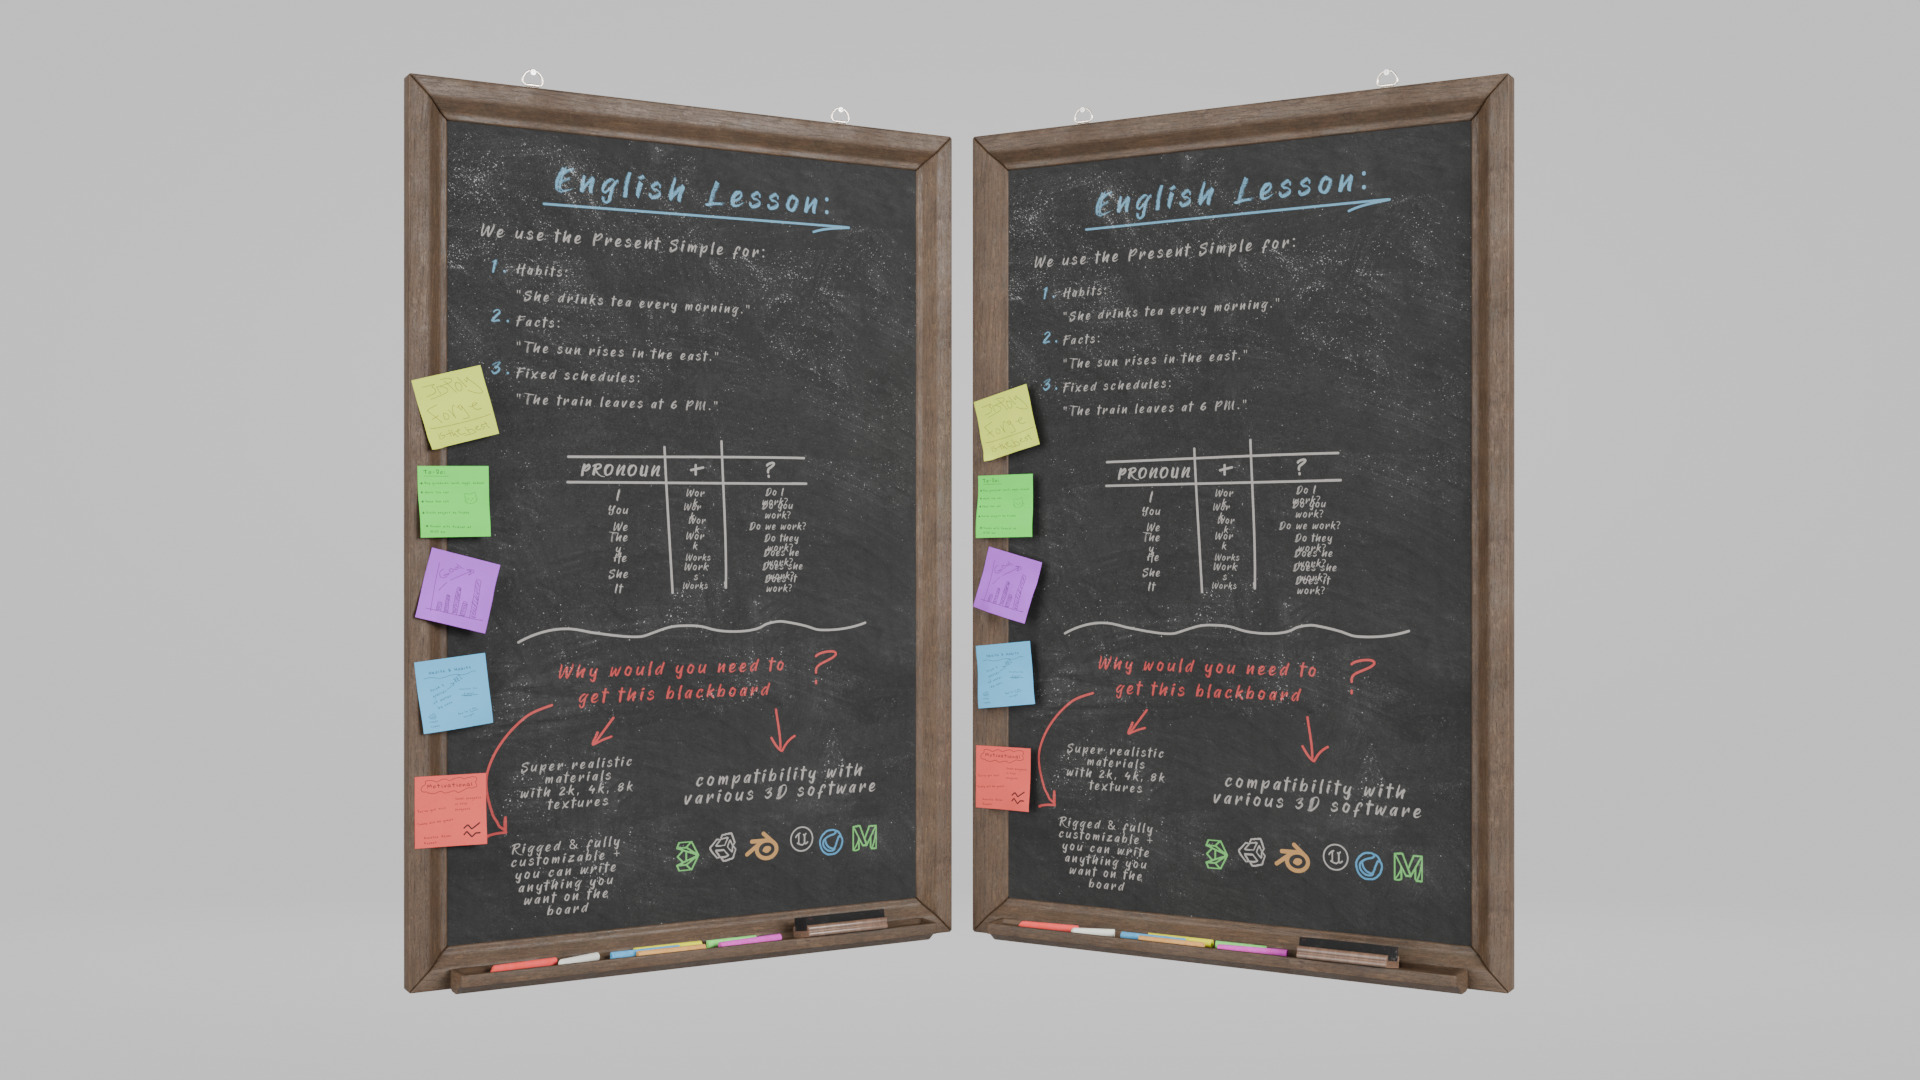 English Lesson:
We use the Present Simple for:
1. Habits:
"She drinks tea every morning."
2. Facts:
"The sun rises in the east."
3. Fixed schedules:
"The train leaves at 6 PM."
PRONOUN + ?
I
You
We
The
y
He
She
It
Wor
Wor
k
Wor
k
Wor
k
Works
Work
s
Works
Do I
work?
Do you
work?
Do we work?
Do they
work?
Does he
work?
Does she
work?
Does it
work?
Why would you need to ?
get this blackboard
Super realistic
materials
with 2k, 4k, 8k
textures
compatibility with
various 3D software
Rigged & fully
customizable +
you can write
anything you
want on the
board
Forge
is the best
To-Do:
Motivational
English Lesson:
We use the Present Simple for:
1. Habits:
"She drinks tea every morning."
2. Facts:
"The sun rises in the east."
3. Fixed schedules:
"The train leaves at 6 PM."
PRONOUN + ?
I
You
We
The
y
He
She
It
Wor
Wor
k
Wor
k
Wor
k
Works
Work
s
Works
Do I
work?
Do you
work?
Do we work?
Do they
work?
Does he
work?
Does she
work?
Does it
work?
Why would you need to ?
get this blackboard
Super realistic
materials
with 2k, 4k, 8k
textures
compatibility with
various 3D software
Rigged & fully
customizable +
you can write
anything you
want on the
board
Forge
is the best
To-Do:
Motivational